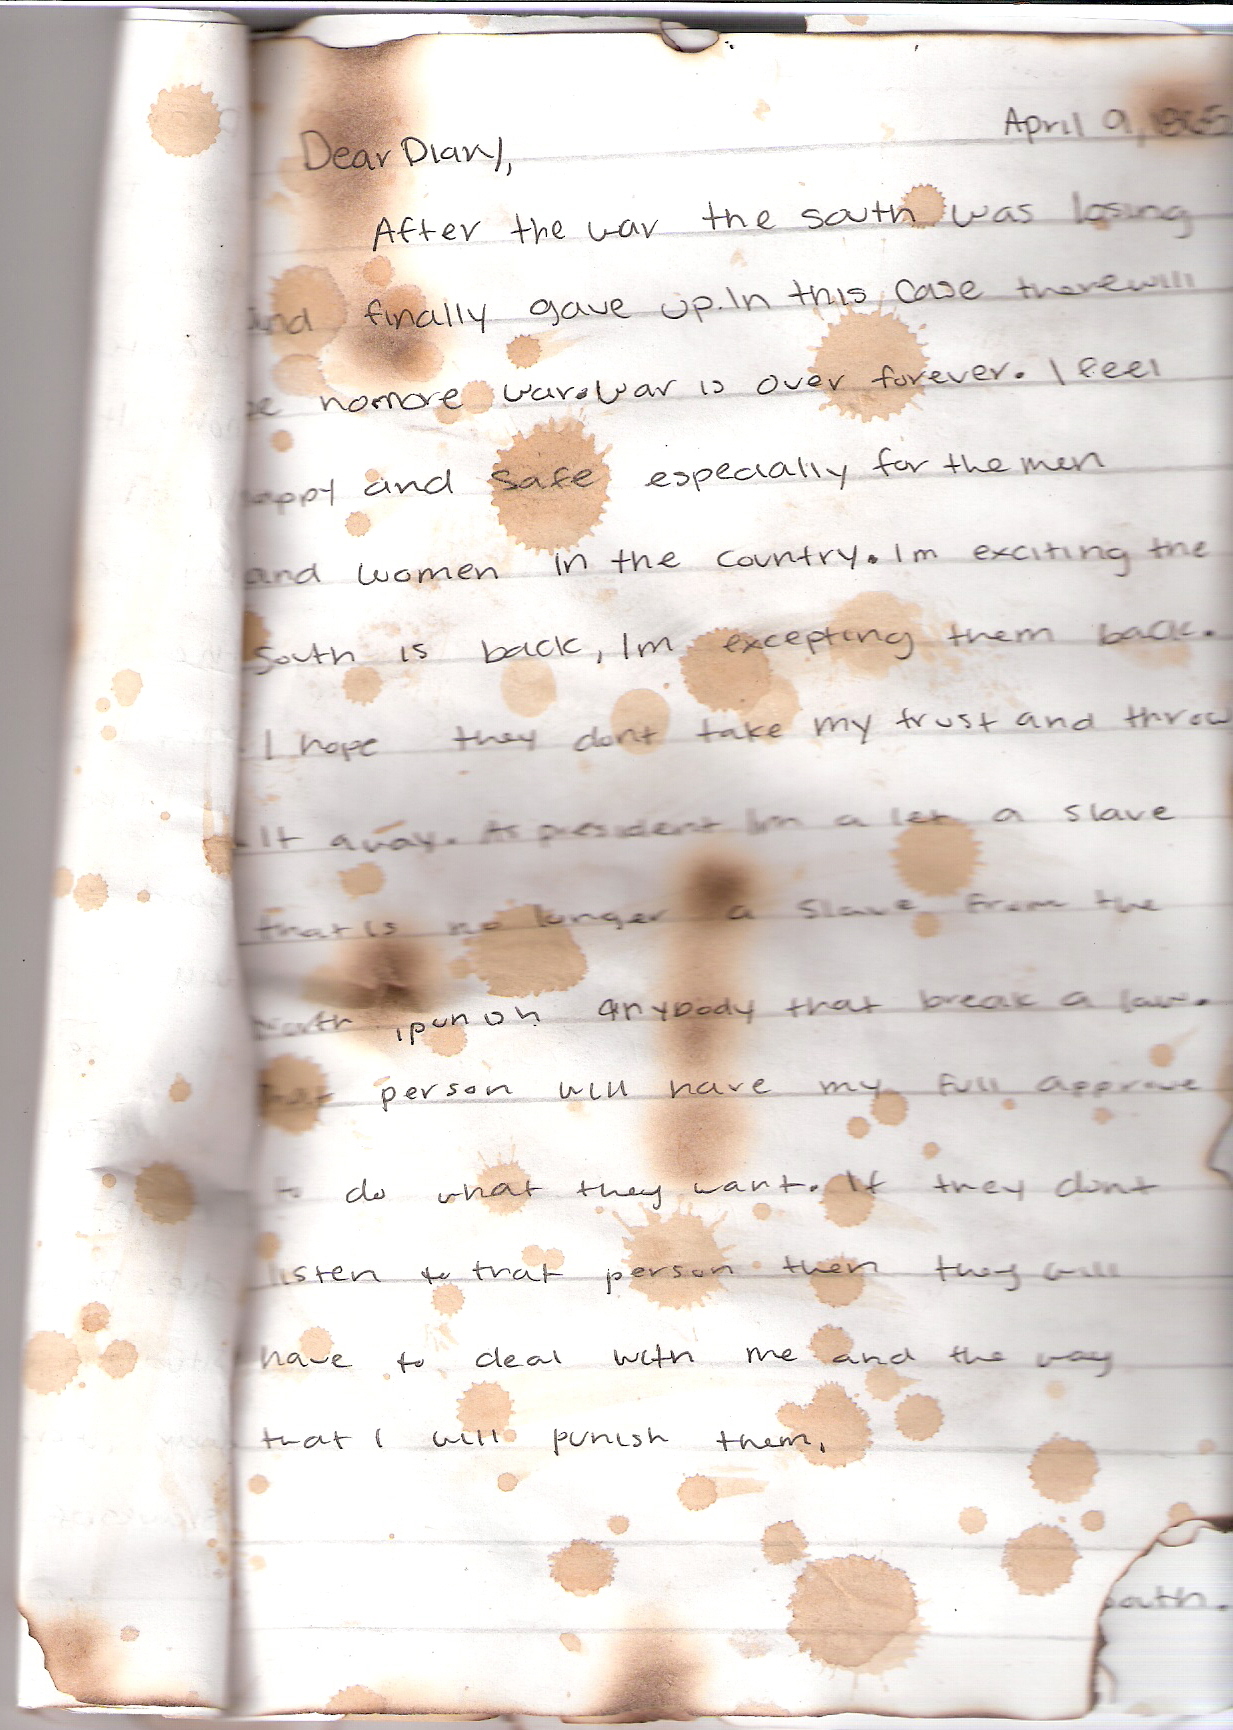 April 9, 1865
Dear Diary,
After the war the south was losing
and finally gave up. In this case there will
be nomore war. War is over forever. I feel
happy and safe especially for the men
and women in the country. Im exciting the
South is back, Im excepting them back.
I hope they dont take my trust and throw
it away. As president Im a let a slave
that is no longer a slave from the
North, punish anybody that break a law.
that person will have my full approve
to do what they want. If they dont
listen to that person then they will
have to deal with me and the way
that I will punish them.
outh.